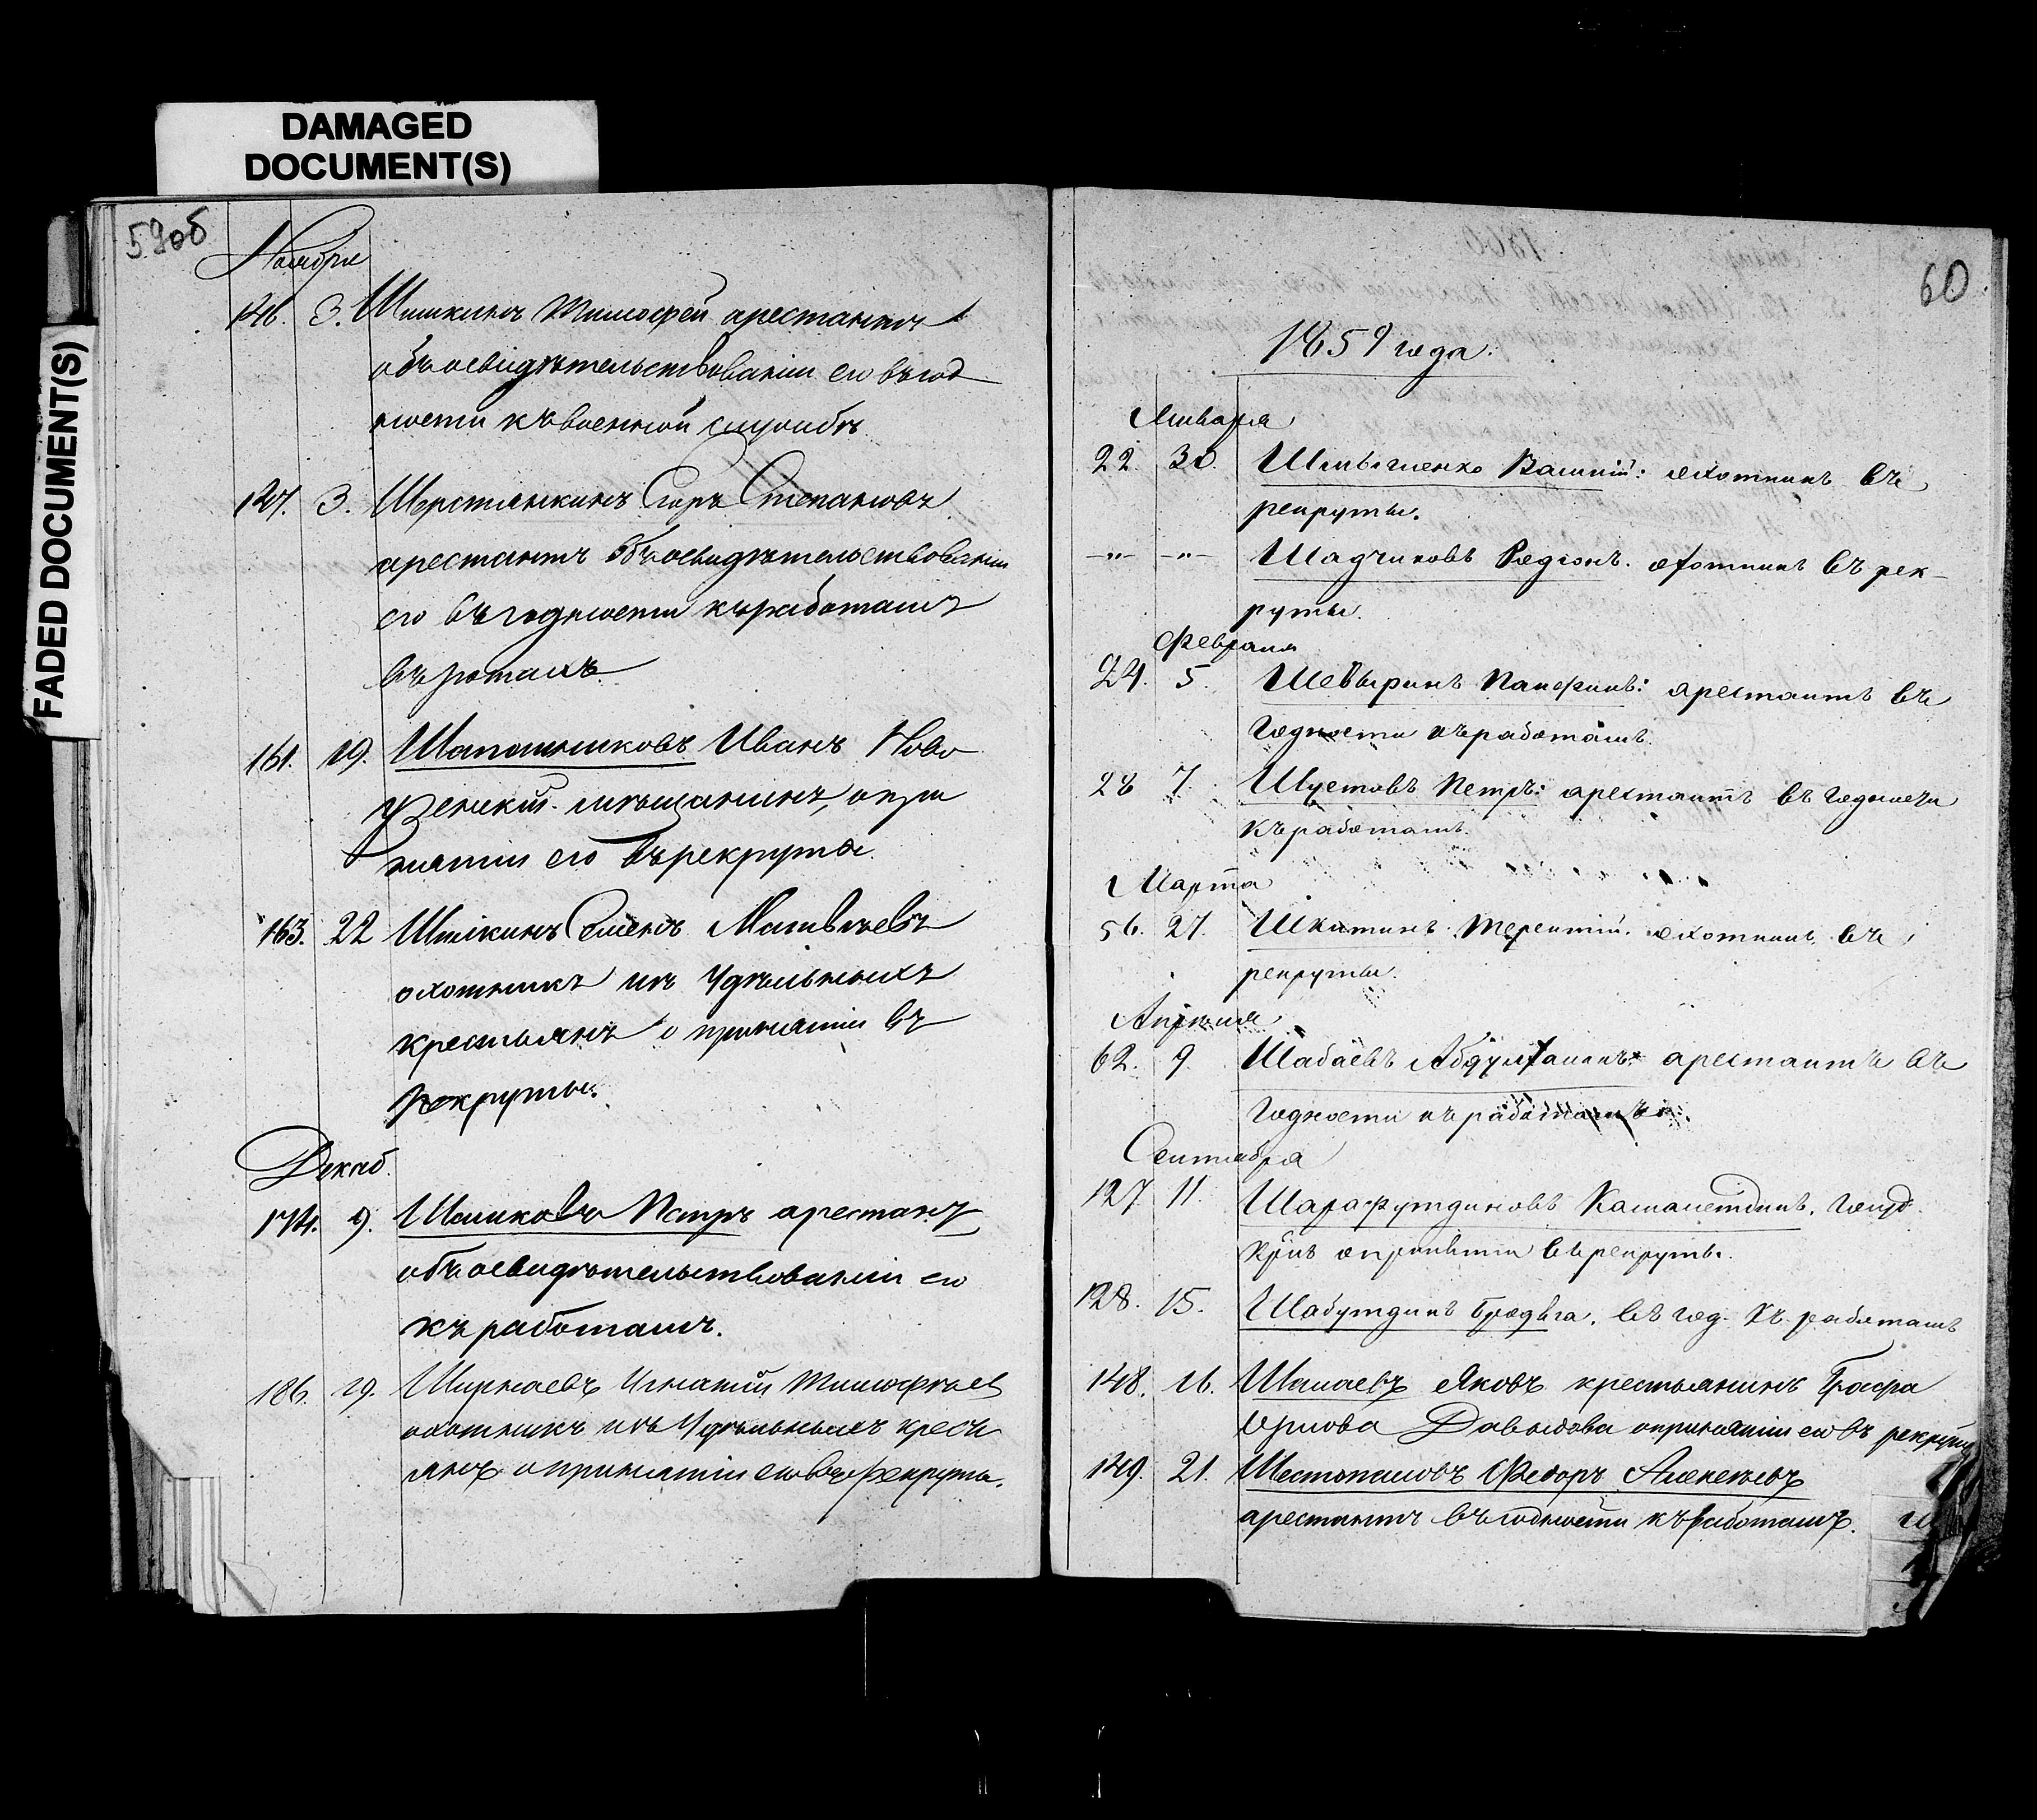 DAMAGED
DOCUMENT(S)
FADED DOCUMENT(S)
59об
Ноября
126. 3. Шишкинъ Тимофей арестантъ
объ освидѣтельствованіи его въ год
ности къ военной службѣ
127. 3. Шерстянкинъ Егоръ Степановъ
арестантъ объ освидѣтельствованіи
его въ годности къ работамъ
въ ротахъ
161. 19. Шапошниковъ Иванъ Ново
узенскій мѣщанинъ, о при
нятіи его въ рекруты.
163. 22 Шишкинъ Семенъ Матвѣевъ
охотникъ изъ Удѣльныхъ
крестьянъ о принятіи въ
рекруты.
Декаб.
174. 9. Шашковъ Петръ арестантъ
объ освидѣтельствованіи его
къ работамъ.
186. 19. Ширяевъ Игнатій Тимофѣев
охотникъ изъ Удѣльныхъ кресть
янъ о принятіи его въ рекруты.
60
1859 года.
Января
22. 30. Василій: охотникъ въ
рекруты.
—"— —"— Шадчиковъ Родіонъ. охотникъ въ рек-
руты.
Февраля
24. 5. Шевыринъ Панфилъ: арестантъ въ
годности къ работамъ.
28 7. Шустовъ Петръ: арестантъ въ годности
къ работамъ.
Марта
56. 27. Шкитинъ Терентій. охотникъ въ
рекруты.
Апрѣля
62. 9. Шабаевъ арестантъ въ
годности къ работамъ.
Сентября
127 11. Шарафутдиновъ Камалетдинъ. госуд.
крѣ о принятіи въ рекруты.
128. 15. Шабутдинъ бродяга. въ год. къ работамъ
148. 16. Шамаевъ Яковъ крестьянинъ Графа
Орлова Давыдова о принятіи его въ рекруты
149. 21. Шестопаловъ Федоръ Алексѣевъ
арестантъ въ годности къ работамъ.